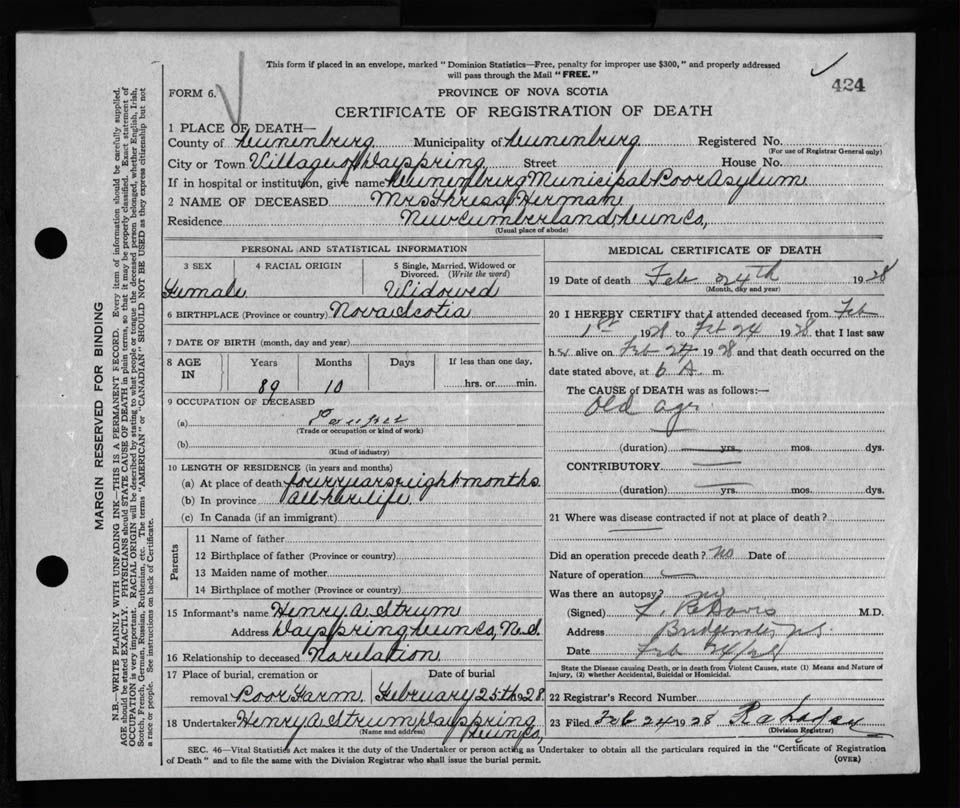 This form if placed in an envelope, marked "Dominion Statistics—Free, penalty for improper use $300," and properly addressed
will pass through the Mail "FREE."
424
FORM 6.
PROVINCE OF NOVA SCOTIA
CERTIFICATE OF REGISTRATION OF DEATH
1 PLACE OF DEATH—
County of Lunenburg Municipality of Lunenburg Registered No.
(For use of Registrar General only)
City or Town Village of Dayspring Street House No.
If in hospital or institution, give name Lunenburg Municipal Poor Asylum
2 NAME OF DECEASED Mrs Thresa Herman
Residence New Cumberland, Lun Co,
(Usual place of abode)
PERSONAL AND STATISTICAL INFORMATION
3 SEX 4 RACIAL ORIGIN 5 Single, Married, Widowed or
Divorced. (Write the word)
Female Widowed
6 BIRTHPLACE (Province or country) Nova Scotia
7 DATE OF BIRTH (month, day and year)
8 AGE Years Months Days If less than one day,
IN
89 10 hrs. or min.
9 OCCUPATION OF DECEASED
(a) Pauper
(Trade or occupation or kind of work)
(b)
(Kind of industry)
10 LENGTH OF RESIDENCE (in years and months)
(a) At place of death four years eight months.
(b) In province all her life
(c) In Canada (if an immigrant)
Parents
11 Name of father
12 Birthplace of father (Province or country)
13 Maiden name of mother
14 Birthplace of mother (Province or country)
15 Informant's name Henry A. Strum
Address Dayspring Lun Co, N.S.
16 Relationship to deceased No relation
17 Place of burial, cremation or Date of burial
removal Poor Farm February 25th 1928
18 Undertaker Henry A. Strum, Dayspring
(Name and address) Lun Co,
MEDICAL CERTIFICATE OF DEATH
19 Date of death Feb 24th 1928
(Month, day and year)
20 I HEREBY CERTIFY that I attended deceased from Feb
1st 1928 to Feb 24 1928 that I last saw
her alive on Feb 24 1928 and that death occurred on the
date stated above, at 6 A. m.
The CAUSE of DEATH was as follows:—
Old age
(duration) yrs. mos. dys.
CONTRIBUTORY
(duration) yrs. mos. dys.
21 Where was disease contracted if not at place of death?
Did an operation precede death? No Date of
Nature of operation
Was there an autopsy? no
(Signed) Davis M.D.
Address Bridgewater, N.S.
Date Feb 24/28
State the Disease causing Death, or in death from Violent Causes, state (1) Means and Nature of
Injury, (2) whether Accidental, Suicidal or Homicidal.
22 Registrar's Record Number
23 Filed Feb 24 1928
(Division Registrar)
SEC. 46—Vital Statistics Act makes it the duty of the Undertaker or person acting as Undertaker to obtain all the particulars required in the "Certificate of Registration
of Death" and to file the same with the Division Registrar who shall issue the burial permit. (OVER)
MARGIN RESERVED FOR BINDING
N.B.—WRITE PLAINLY WITH UNFADING INK—THIS IS A PERMANENT RECORD. Every item of information should be carefully supplied.
AGE should be stated EXACTLY. PHYSICIANS should STATE CAUSE OF DEATH in plain terms, so that it may be properly classified. Exact statement of
OCCUPATION is very important. RACIAL ORIGIN will be described by stating to what people or tongue the deceased person belonged, whether English, Irish,
Scotch, French, German, Russian, Ruthenian, etc. The terms "AMERICAN" or "CANADIAN" SHOULD NOT BE USED as they express citizenship but not
a race or people. See instructions on back of Certificate.